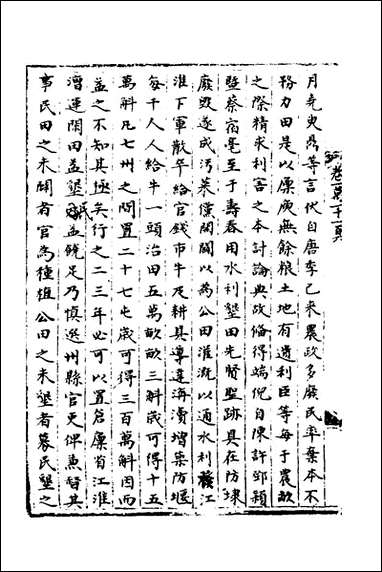 月堯叟等言伏自唐李已來農政多廢民率棄本不
務力田是以廩庾無餘粮土地有遺利臣等每于農畝
之際精求利害之本討論典故俻得端倪自陳許鄧潁
暨蔡宿亳至于壽春用水利墾田先賢聖跡具在防埭
廢毀遂成污萊儻開闢以為公田灌溉以通水利江
淮下軍散卒給官錢市牛及耕具導達溝瀆增築防堰
每千人人給牛一頭治田五萬畝畝三斛歲可得十五
萬斛凡七州之間置二十七屯歲可得三百萬斛因而
益之不知其極矣行之二三年必可以置倉廩省江淮
漕運閑田益墾民益饒足乃慎選州縣官吏俾兼督其
事民田之未闢者官為種植公田之未墾者募民墾之